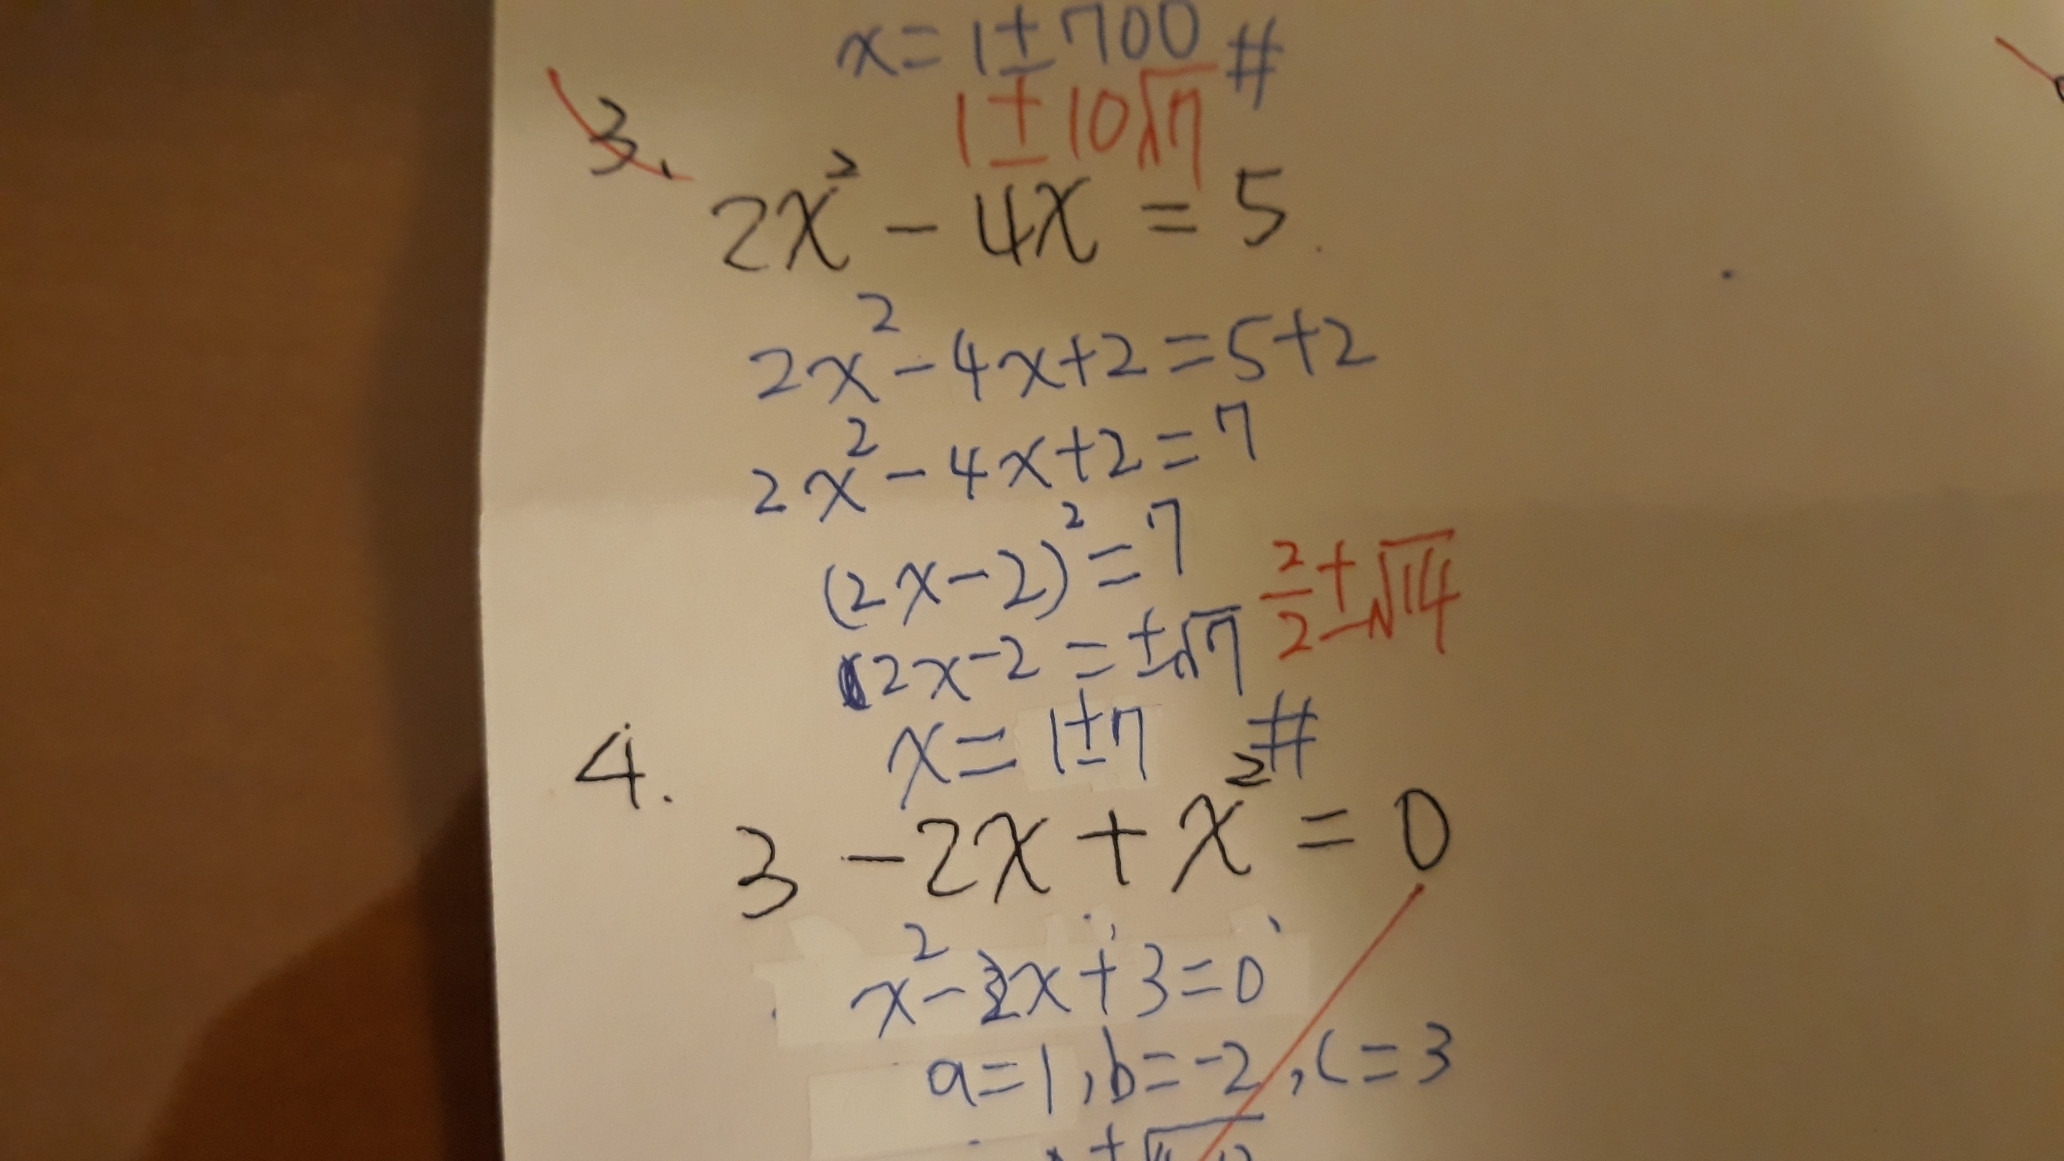 x=1±700 #
1±10√7
3.
2x² - 4x = 5
2x²-4x+2=5+2
2x²-4x+2=7
(2x-2)²=7
2x-2=±√7
2/2±√14
x=1±7 #
4.
3 -2x + x² = 0
x²-2x+3=0
a=1,b=-2,c=3